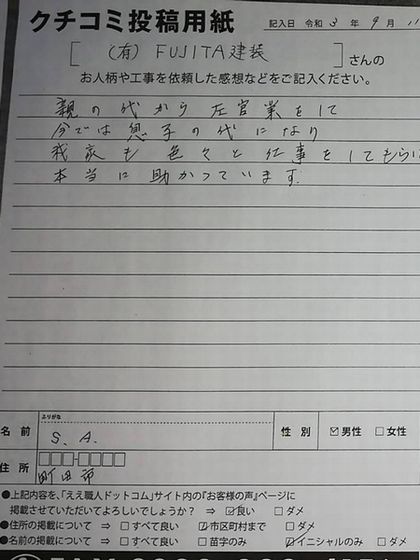 クチコミ投稿用紙 記入日 令和 3 年 9 月 11
[ (有) FUJITA建装 ] さんの
お人柄や工事を依頼した感想などをご記入ください。
親の代から左官業をして
今では息子の代になり
我家も色々と仕事をしてもらい
本当に助かっています
ふりがな
名前 S、A. 性別 ☑男性 □女性
住所 □□□-□□□□
町田市
●上記内容を、「ええ職人ドットコム」サイト内の『お客様の声』ページに
掲載させていただいてよろしいでしょうか? ⇒ ☑良い □ダメ
●住所の掲載について ⇒ □すべて良い ☑市区町村まで □ダメ
●名前の掲載について ⇒ □すべて良い □苗字のみ ☑イニシャルのみ □ダメ